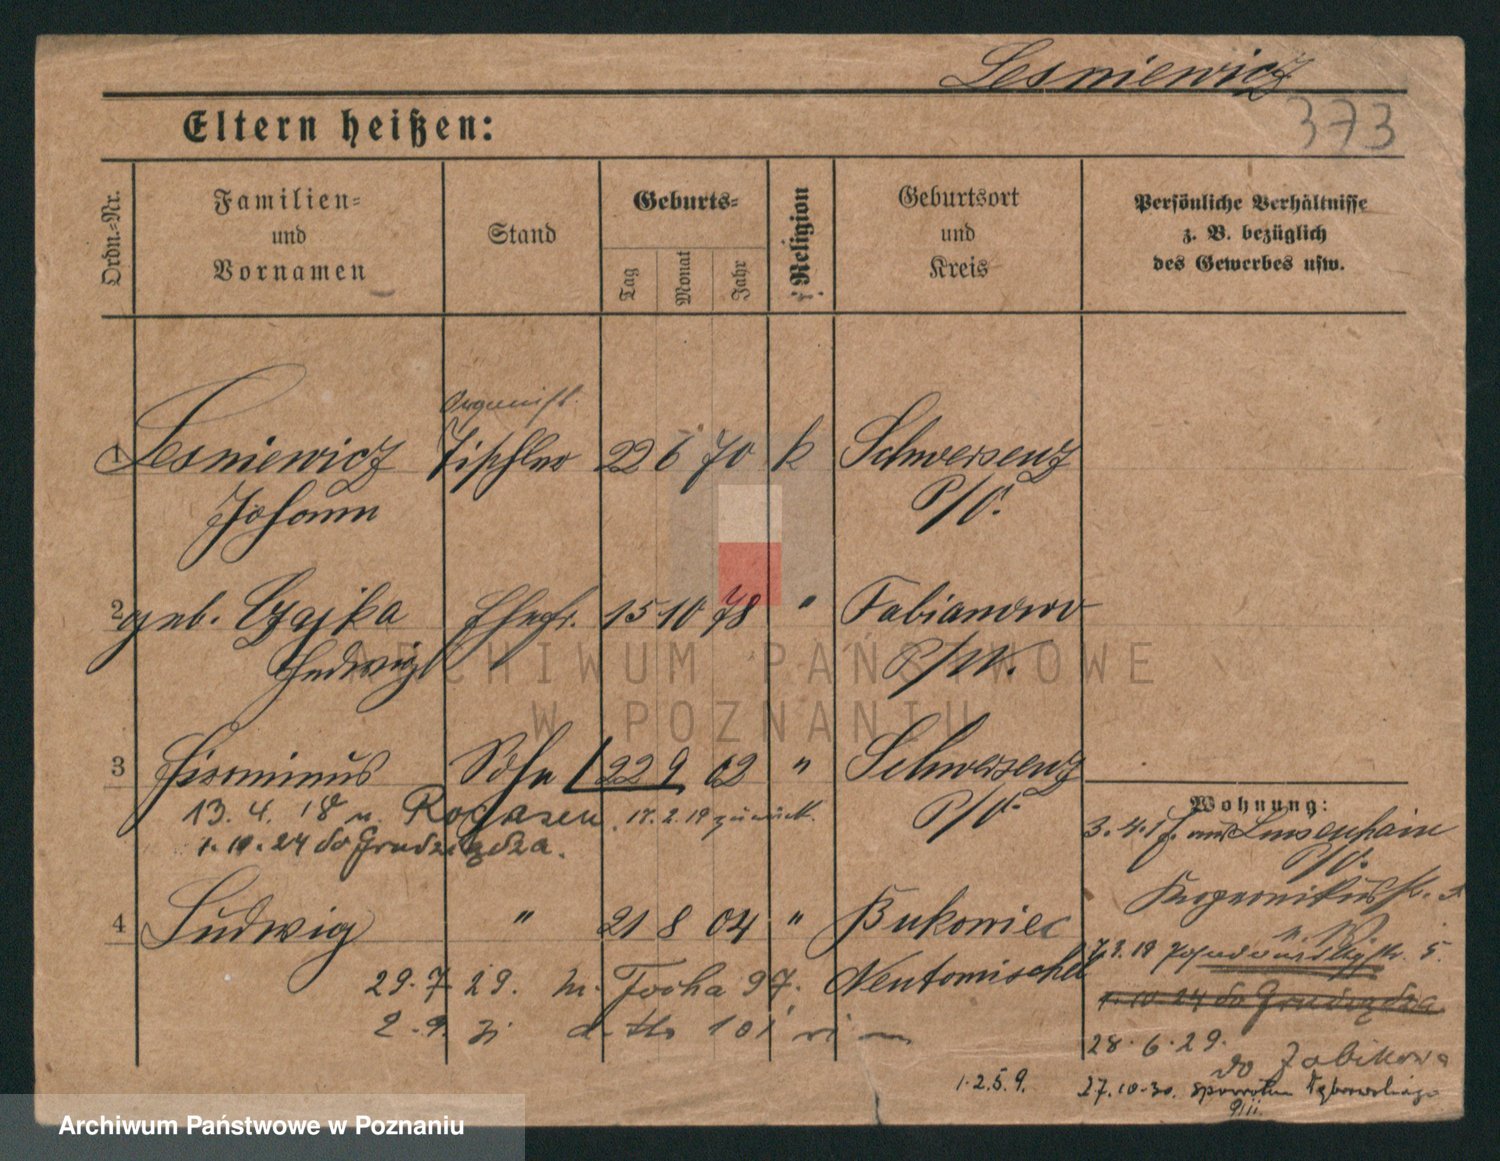 Lesniewicz
373
Eltern heißen:
Ordn.-Nr.
Familien- und Vornamen
Stand
Geburts-
Tag
Monat
Jahr
Religion
Geburtsort und Kreis
Persönliche Verhältnisse z. B. bezüglich des Gewerbes usw.
Organist.
1 Lesniewicz Tischler 22 6 70 k Schwersenz
Johann P/O.
2 geb. Czajka Ehefr. 15 10 78 " Fabianowo
Hedwig P/W.
3 Firminus Sohn 22 9 02 " Schwersenz
P/O.
13. 4. 18 n. Rogasen. 17. 2. 19 zurück.
1. 10. 24 do Grudziądza.
Wohnung:
3. 4. 1 aus Luisenhain
P/O.
Kopernikusstr.
4 Ludwig " 21 8 04 " Bukowiec
Neutomischel
5.
29. 7. 29. m. Focha 97.
1. 10. 24 do Grudziądza
2. 9. 101
28. 6. 29.
do Żabikowa
1. 2. 5. 9.
27. 10. 30. spowrotem Dąbrowskiego
Archiwum Państwowe
w Poznaniu
Archiwum Państwowe w Poznaniu